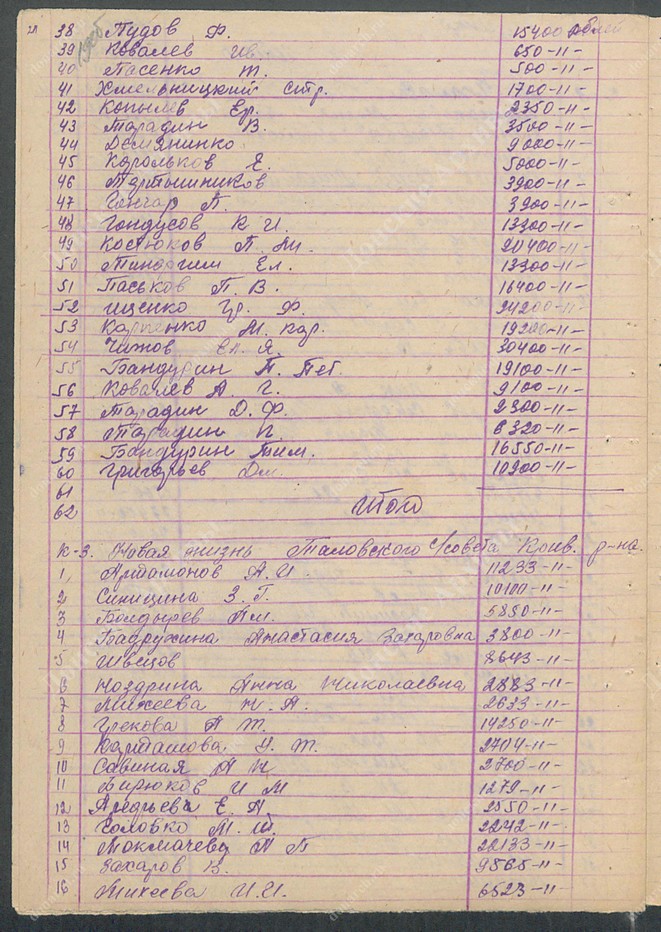 38 Пудов Ф. 15400 рублей
39 Ковалев Ив. 650-11-
40 Пасенко Т. 500-11-
41 Хмельницкий Стр. 1700-11-
42 Копылев Ер. 2350-11-
43 Тарадин В. 3500-11-
44 Демяненко 9000-11-
45 Карольков Я. 5000-11-
46 Мартынников 3900-11-
47 Гончар П. 3900-11-
48 Гондусов К И. 13300-11-
49 Костюков П. М. 20400-11-
50 Ел. 13300-11-
51 Паськов П. В. 16400-11-
52 Ищенко Гр. Ф. 24200-11-
53 Карпенко М. Кар. 19200-11-
54 Чижов Ел. Я. 30400-11-
55 Бандурин П. Пет. 19100-11-
56 Ковалев А. Г. 9100-11-
57 Тарадин Д. Ф. 2300-11-
58 Тарадин П. 6320-11-
59 Бандурин Тим. 16550-11-
60 Григорьев Дм. 10900-11-
61
62 Итого
К-з. Новая жизнь Таловского с/совета Конв. р-на.
1, А. И. 11233-11-
2 Синицина З. Г. 10100-11-
3 Болдырев Ем. 5850-11-
4 Бабрухина Анастасия Захаровна 3800-11-
5 Швецов 8643-11-
6 Ноздрина Анна Николаевна 2883-11-
7 Михеева Н. А. 2623-11-
8 Грекова А Т. 14250-11-
9 Кардашова У. Т. 2704-11-
10 Савиная А Н 2700-11-
11 Бирюков И М 1279-11-
12 Е А. 2550-11-
13 Головко М. Ш. 2242-11-
14 Токмачева А П 22133-11-
15 Захаров В. 9565-11-
16 Михеева И. И. 6523-11-